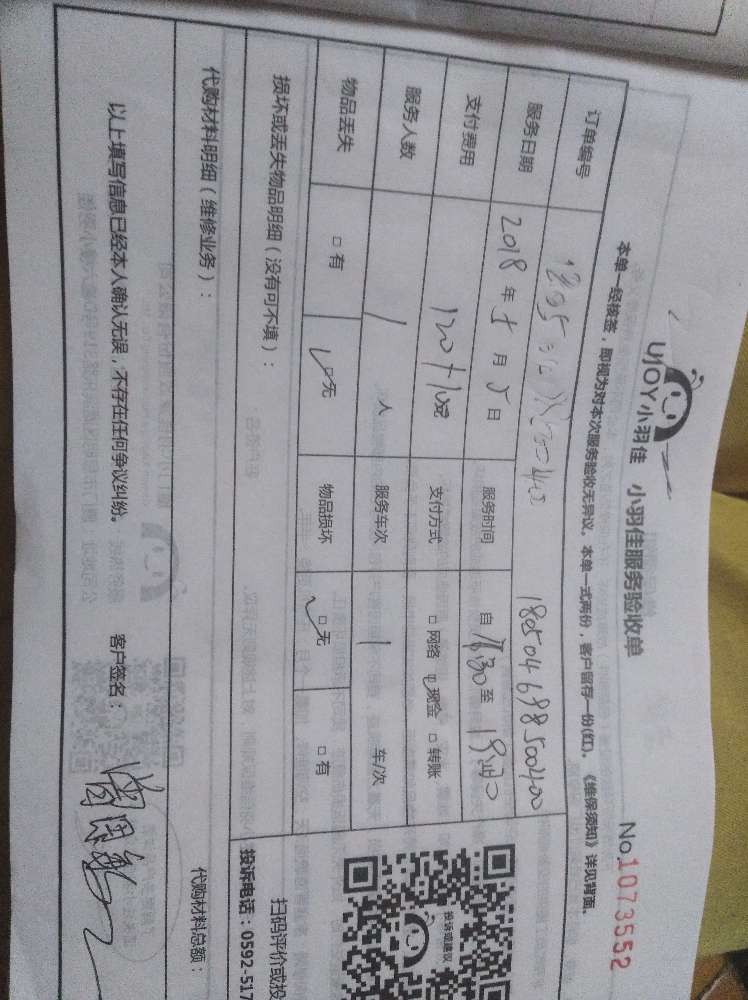 UJOY小羽佳 小羽佳服务验收单
No.1073552
本单一经核签，即视为对本次服务验收无异议。本单一式两份，客户留存一份(红)。《维保须知》详见背面。
订单编号 180504698500400
服务日期 2018年5月5日 服务时间 自 至
支付费用 支付方式 □网络 ☑现金 □转账
服务人数 1 人 服务车次 1 车/次
物品丢失 □有 ☑无 物品损坏 ☑无 □有
损坏或丢失物品明细（没有可不填）：
代购材料明细（维修业务）：
代购材料总额：
以上填写信息已经本人确认无误，不存在任何争议纠纷。 客户签名：
投诉或建议
扫码评价或投
投诉电话：0592-517